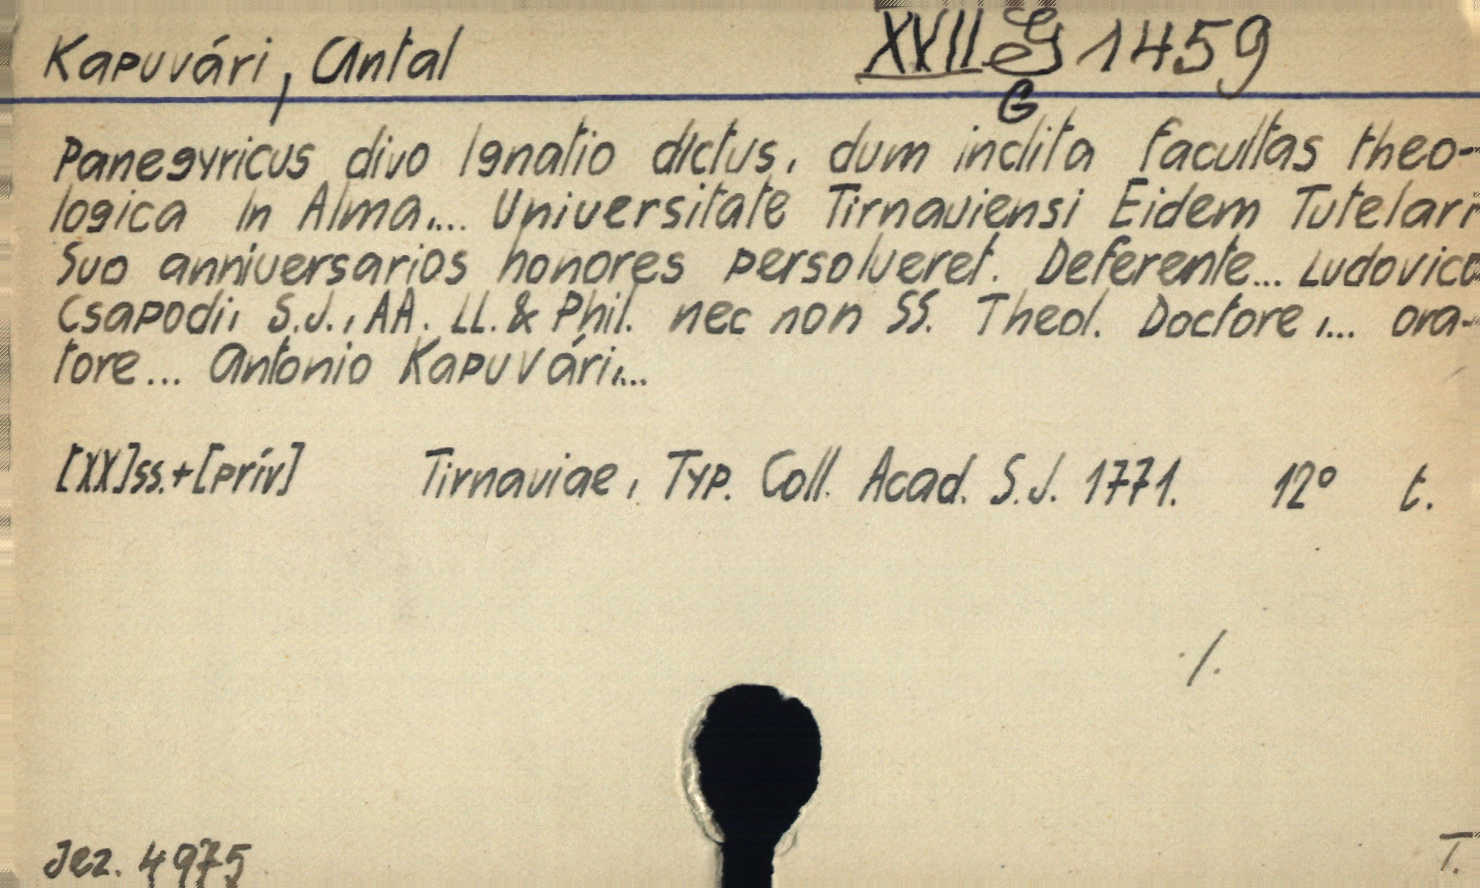 Kapuvári, Antal XVII G 1459
G
Panegyricus divo Ignatio dictus, dum inclita facultas theo-
logica in Alma,... Universitate Tirnaviensi Eidem Tutelari
Suo anniversarios honores persolveret. Deferente... Ludovico
Csapodi, S.J., AA. LL. & Phil. nec non SS. Theol. Doctore,... ora-
tore... Antonio Kapuvári,...
[XX]ss.+[prív] Tirnaviae, Typ. Coll. Acad. S.J. 1771. 12° t.
./.
Jez. 4975 T.